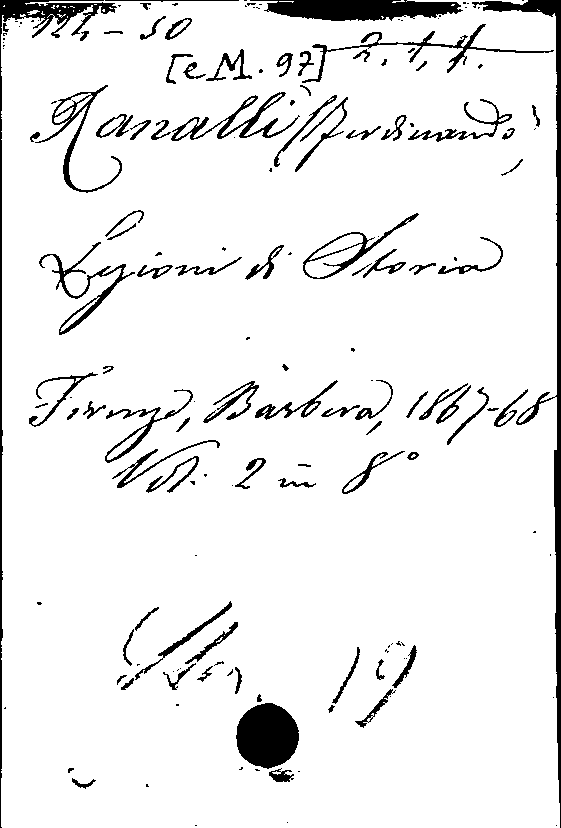 124-50
[e M. 97] 2. 1, 4.
Ranalli (Ferdinando)
Lezioni di Storia
Firenze, Barbera, 1867-68
Vol. 2 in 8°
Stor. 19